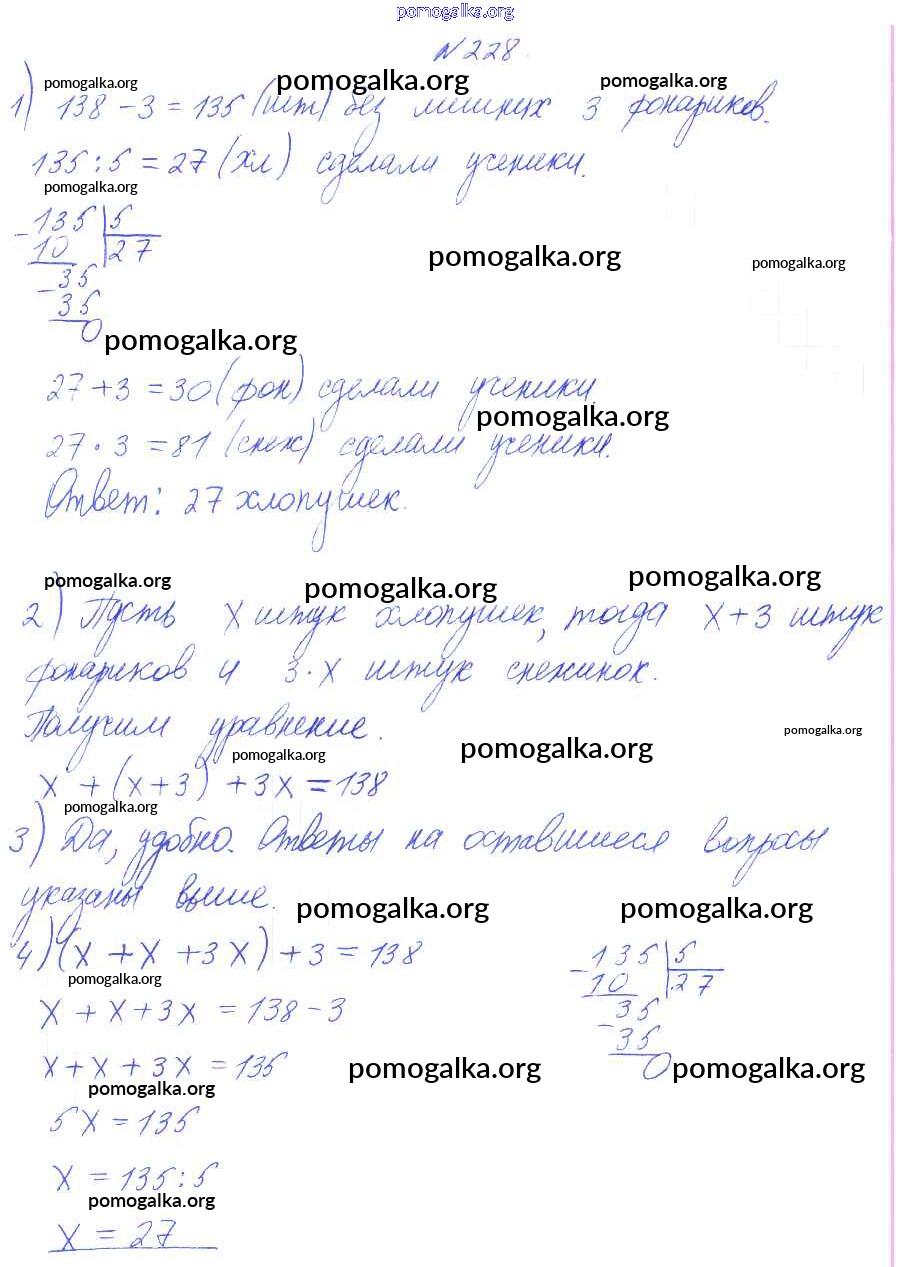 pomogalka.org
№228.
pomogalka.org pomogalka.org pomogalka.org
1) 138 - 3 = 135 (шт) без лишних 3 фонариков.
135 : 5 = 27 (хл) сделали ученики.
pomogalka.org
- 135 | 5
10 | 27
pomogalka.org pomogalka.org
- 35
35
0
pomogalka.org
27 + 3 = 30 (фон) сделали ученики.
pomogalka.org
27 · 3 = 81 (снеж) сделали ученики.
Ответ: 27 хлопушек.
pomogalka.org pomogalka.org pomogalka.org
2) Пусть x штук хлопушек, тогда x + 3 штук
фонариков и 3 · x штук снежинок.
Получим уравнение.
pomogalka.org pomogalka.org pomogalka.org
x + (x + 3) + 3x = 138
pomogalka.org
3) Да, удобно. Ответы на оставшиеся вопросы
указаны выше.
pomogalka.org pomogalka.org
4) (x + x + 3x) + 3 = 138
- 135 | 5
10 | 27
pomogalka.org
x + x + 3x = 138 - 3
- 35
35
0
x + x + 3x = 135
pomogalka.org pomogalka.org
pomogalka.org
5x = 135
x = 135 : 5
pomogalka.org
x = 27